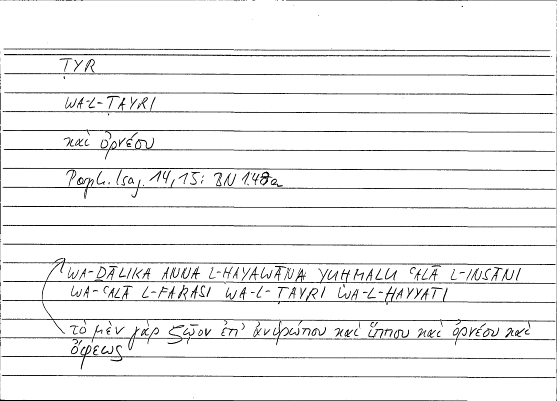 ṬYR
WA-L-ṬAYRI
καὶ ὀρνέου
Porph. Isag. 14, 15: BN 148a
WA-ḎĀLIKA ANNA L-ḤAYAWĀNA YUḤMALU ʿALĀ L-INSĀNI
WA-ʿALĀ L-FARASI WA-L-ṬAYRI WA-L-ḤAYYATI
τὸ μὲν γὰρ ζῷον ἐπ' ἀνθρώπου καὶ ἵππου καὶ ὀρνέου καὶ
ὄφεως